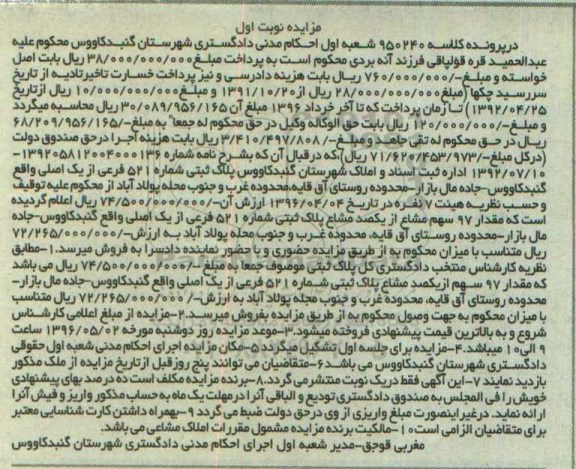 مزایده نوبت اول
درپرونده کلاسه ۹۵۰۲۴۰ شعبه اول احکام مدنی دادگستری شهرستان گنبدکاووس محکوم علیه
عبدالحمید قره قولیاقی فرزند آنه بردی محکوم است به پرداخت مبلغ ۳۸/۰۰۰/۰۰۰/۰۰۰ ریال بابت اصل
خواسته و مبلغ-/۷۶۰/۰۰۰/۰۰۰ ریال بابت هزینه دادرسی و نیز پرداخت خسارت تاخیرتادیه از تاریخ
سررسید چکها (مبلغ ۲۸/۰۰۰/۰۰۰/۰۰۰ ریال از ۱۳۹۱/۱۰/۲۰ و مبلغ-/۱۰/۰۰۰/۰۰۰/۰۰۰ ریال ازتاریخ
۱۳۹۲/۰۴/۲۵) تا زمان پرداخت که تا آخر خرداد ۱۳۹۶ مبلغ آن ۳۰/۰۸۹/۹۵۶/۱۶۵ ریال محاسبه میگردد
و مبلغ-/۱۲۰/۰۰۰/۰۰۰ ریال بابت حق الوکاله وکیل در حق محکوم له جمعا" به مبلغ-/۶۸/۲۰۹/۹۵۶/۱۶۵
ریال در حق محکوم له تقی جامید و مبلغ-/۳/۴۱۰/۴۹۷/۸۰۸ ریال بابت هزینه اجرا درحق صندوق دولت
(درکل مبلغ-/۷۱/۶۲۰/۴۵۳/۹۷۳ ریال)که درقبال آن که بشرح نامه شماره ۱۳۹۲۰۵۸۱۲۰۰۴۰۰۰۱۳۶-
۱۳۹۲/۰۷/۱۰ اداره ثبت اسناد و املاک شهرستان گنبدکاووس پلاک ثبتی شماره ۵۲۱ فرعی از یک اصلی واقع
گنبدکاووس-جاده مال بازار-محدوده روستای آق قایه،محدوده غرب و جنوب محله پولاد آباد از محکوم علیه توقیف
و حسب نظریه هیئت ۷ نفره در تاریخ ۱۳۹۶/۰۴/۰۴ ارزش آن-/۷۴/۵۰۰/۰۰۰/۰۰۰ ریال اعلام گردیده
است که مقدار ۹۷ سهم مشاع از یکصد مشاع پلاک ثبتی شماره ۵۲۱ فرعی از یک اصلی واقع گنبدکاووس-جاده
مال بازار-محدوده روستای آق قایه، محدوده غرب و جنوب محله پولاد آباد به ارزش-/۷۲/۲۶۵/۰۰۰/۰۰۰
ریال متناسب با میزان محکوم به از طریق مزایده حضوری و با حضور نماینده دادسرا به فروش میرسد.۱-مطابق
نظریه کارشناس منتخب دادگستری کل پلاک ثبتی موصوف جمعا به مبلغ-/۷۴/۵۰۰/۰۰۰/۰۰۰ ریال می باشد
که مقدار ۹۷ سهم ازیکصد مشاع پلاک ثبتی شماره ۵۲۱ فرعی از یک اصلی واقع گنبدکاووس-جاده مال بازار-
محدوده روستای آق قایه، محدوده غرب و جنوب محله پولاد آباد به ارزش-/۷۲/۲۶۵/۰۰۰/۰۰۰ ریال متناسب
با میزان محکوم به جهت وصول محکوم به از طریق مزایده بفروش میرسد.۲-مزایده از مبلغ اعلامی کارشناس
شروع و به بالاترین قیمت پیشنهادی فروخته میشود.۳-موعد مزایده روز دوشنبه مورخه ۱۳۹۶/۰۵/۰۲ ساعت
۹ الی ۱۰ میباشد.۴-مزایده برای جلسه اول تشکیل میگردد ۵-مکان مزایده اجرای احکام مدنی شعبه اول حقوقی
دادگستری شهرستان گنبدکاووس می باشد ۶-متقاضیان می توانند پنج روز قبل ازتاریخ مزایده از ملک مذکور
بازدید نمایند ۷-این آگهی فقط دریک نوبت منتشر می گردد.۸-برنده مزایده مکلف است ده درصد بهای پیشنهادی
خویش را فی المجلس به صندوق دادگستری تودیع و الباقی آنرا درمهلت یک ماه به حساب مذکور واریز و فیش آنرا
ارائه نماید. درغیراینصورت مبلغ واریزی از وی درحق دولت ضبط می گردد ۹-بهمراه داشتن کارت شناسایی معتبر
برای متقاضیان الزامی است ۱۰-مالکیت برنده مزایده مشمول مقررات املاک مشاعی می باشد.
مغربی قوجق-مدیر شعبه اول اجرای احکام مدنی دادگستری شهرستان گنبدکاووس